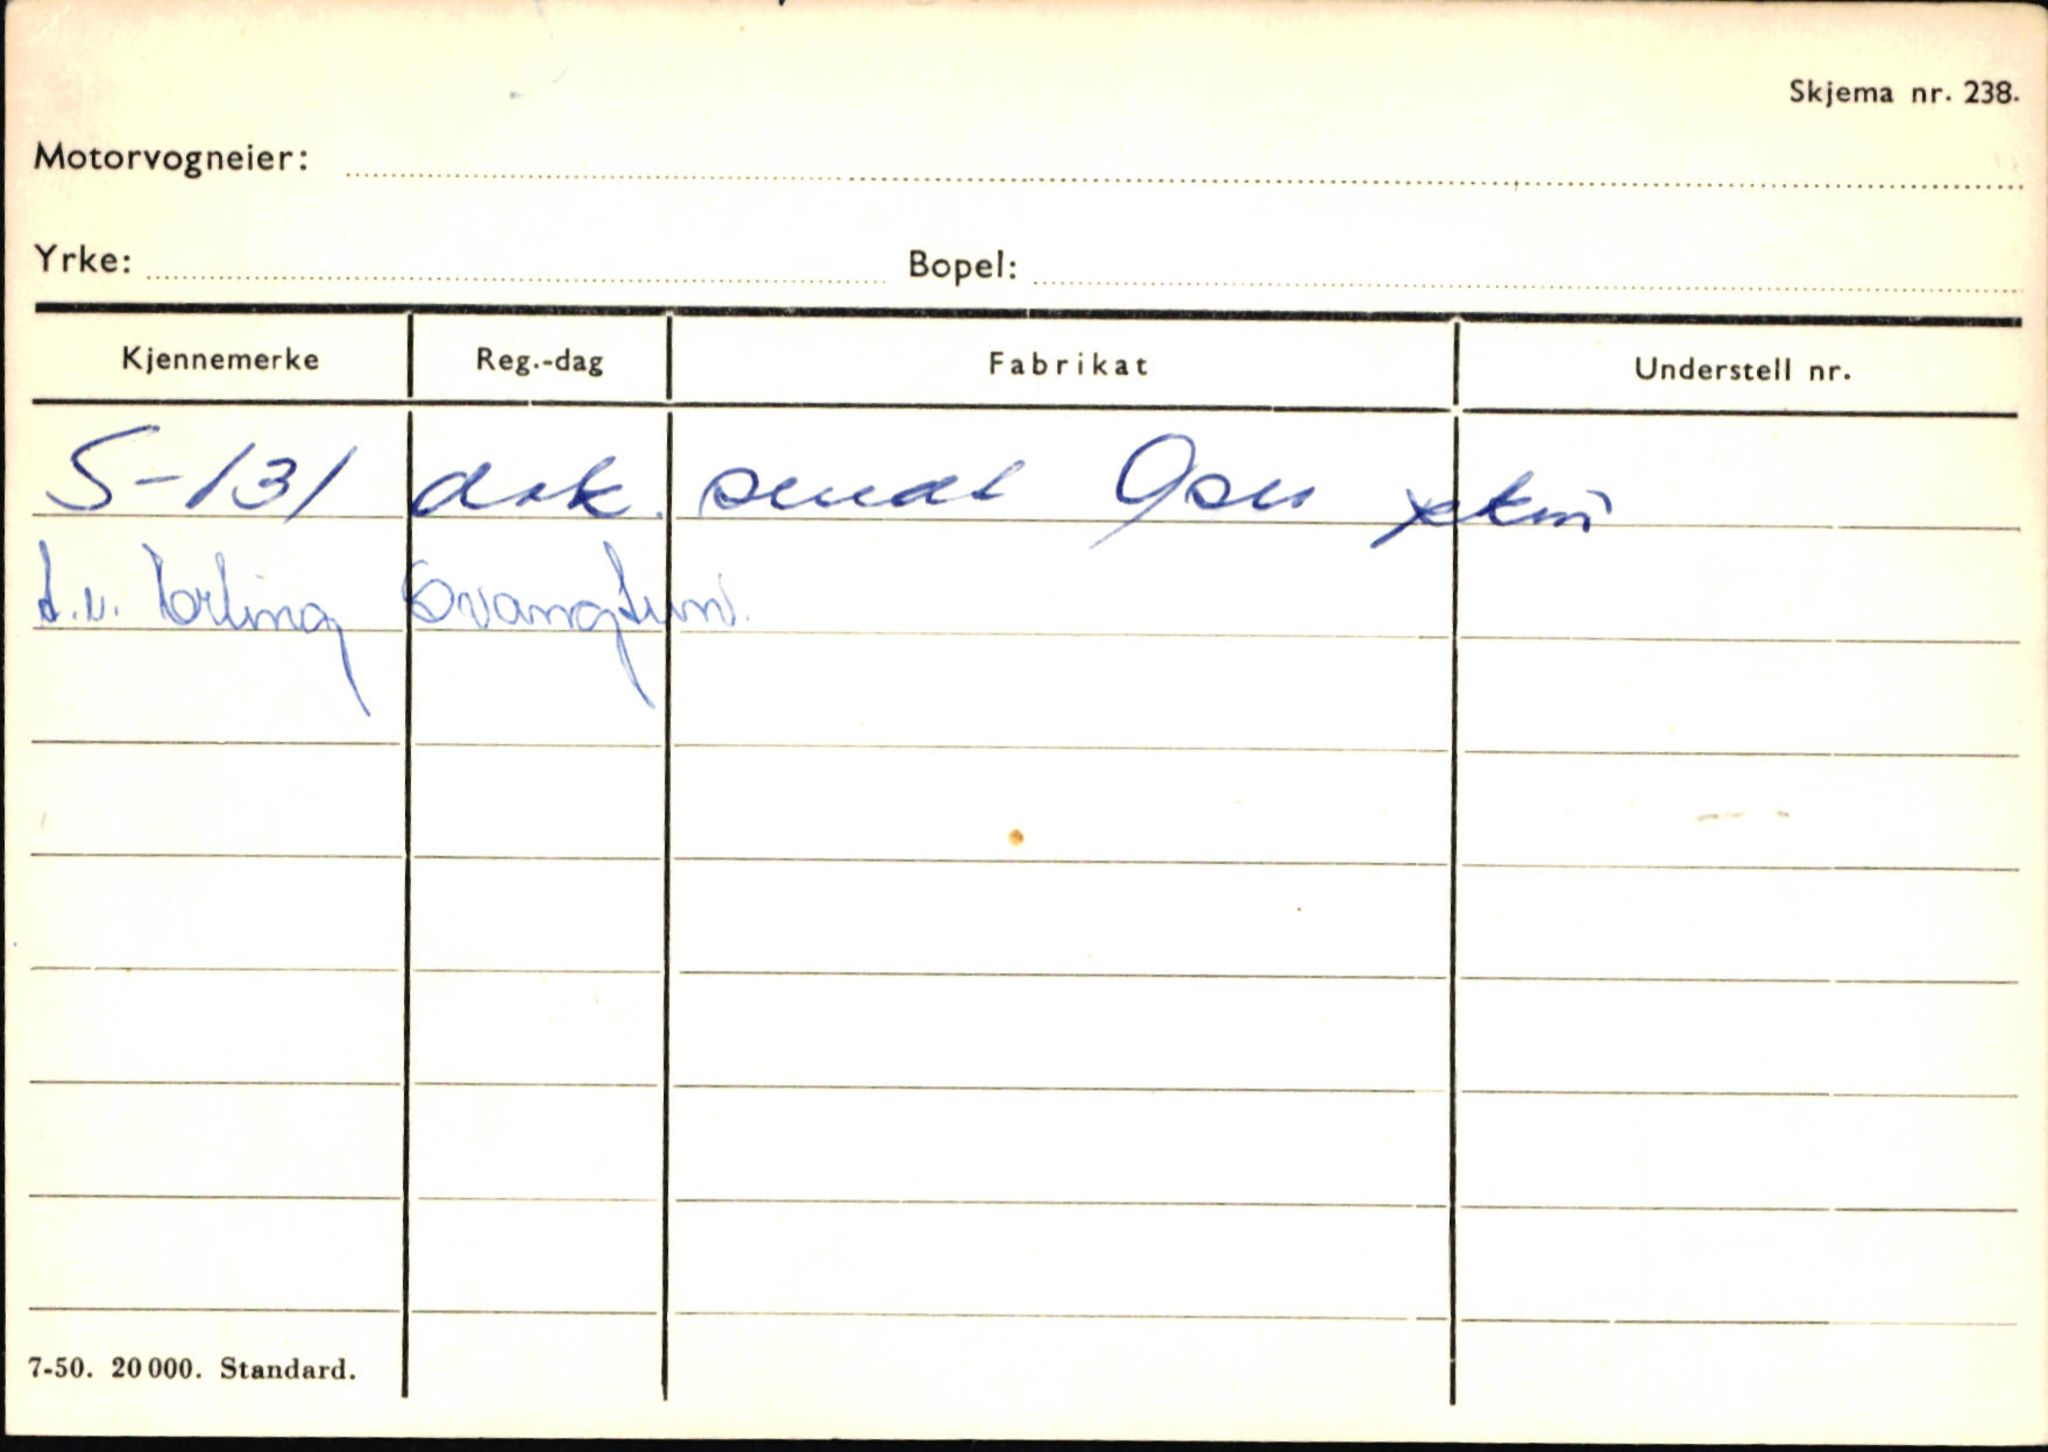 Skjema nr. 238.
Motorvogneier:
Yrke: Bopel:
Kjennemerke Reg.-dag Fabrikat Understell nr.
S-131 dok. sendt
t.v. Erling
7-50. 20 000. Standard.